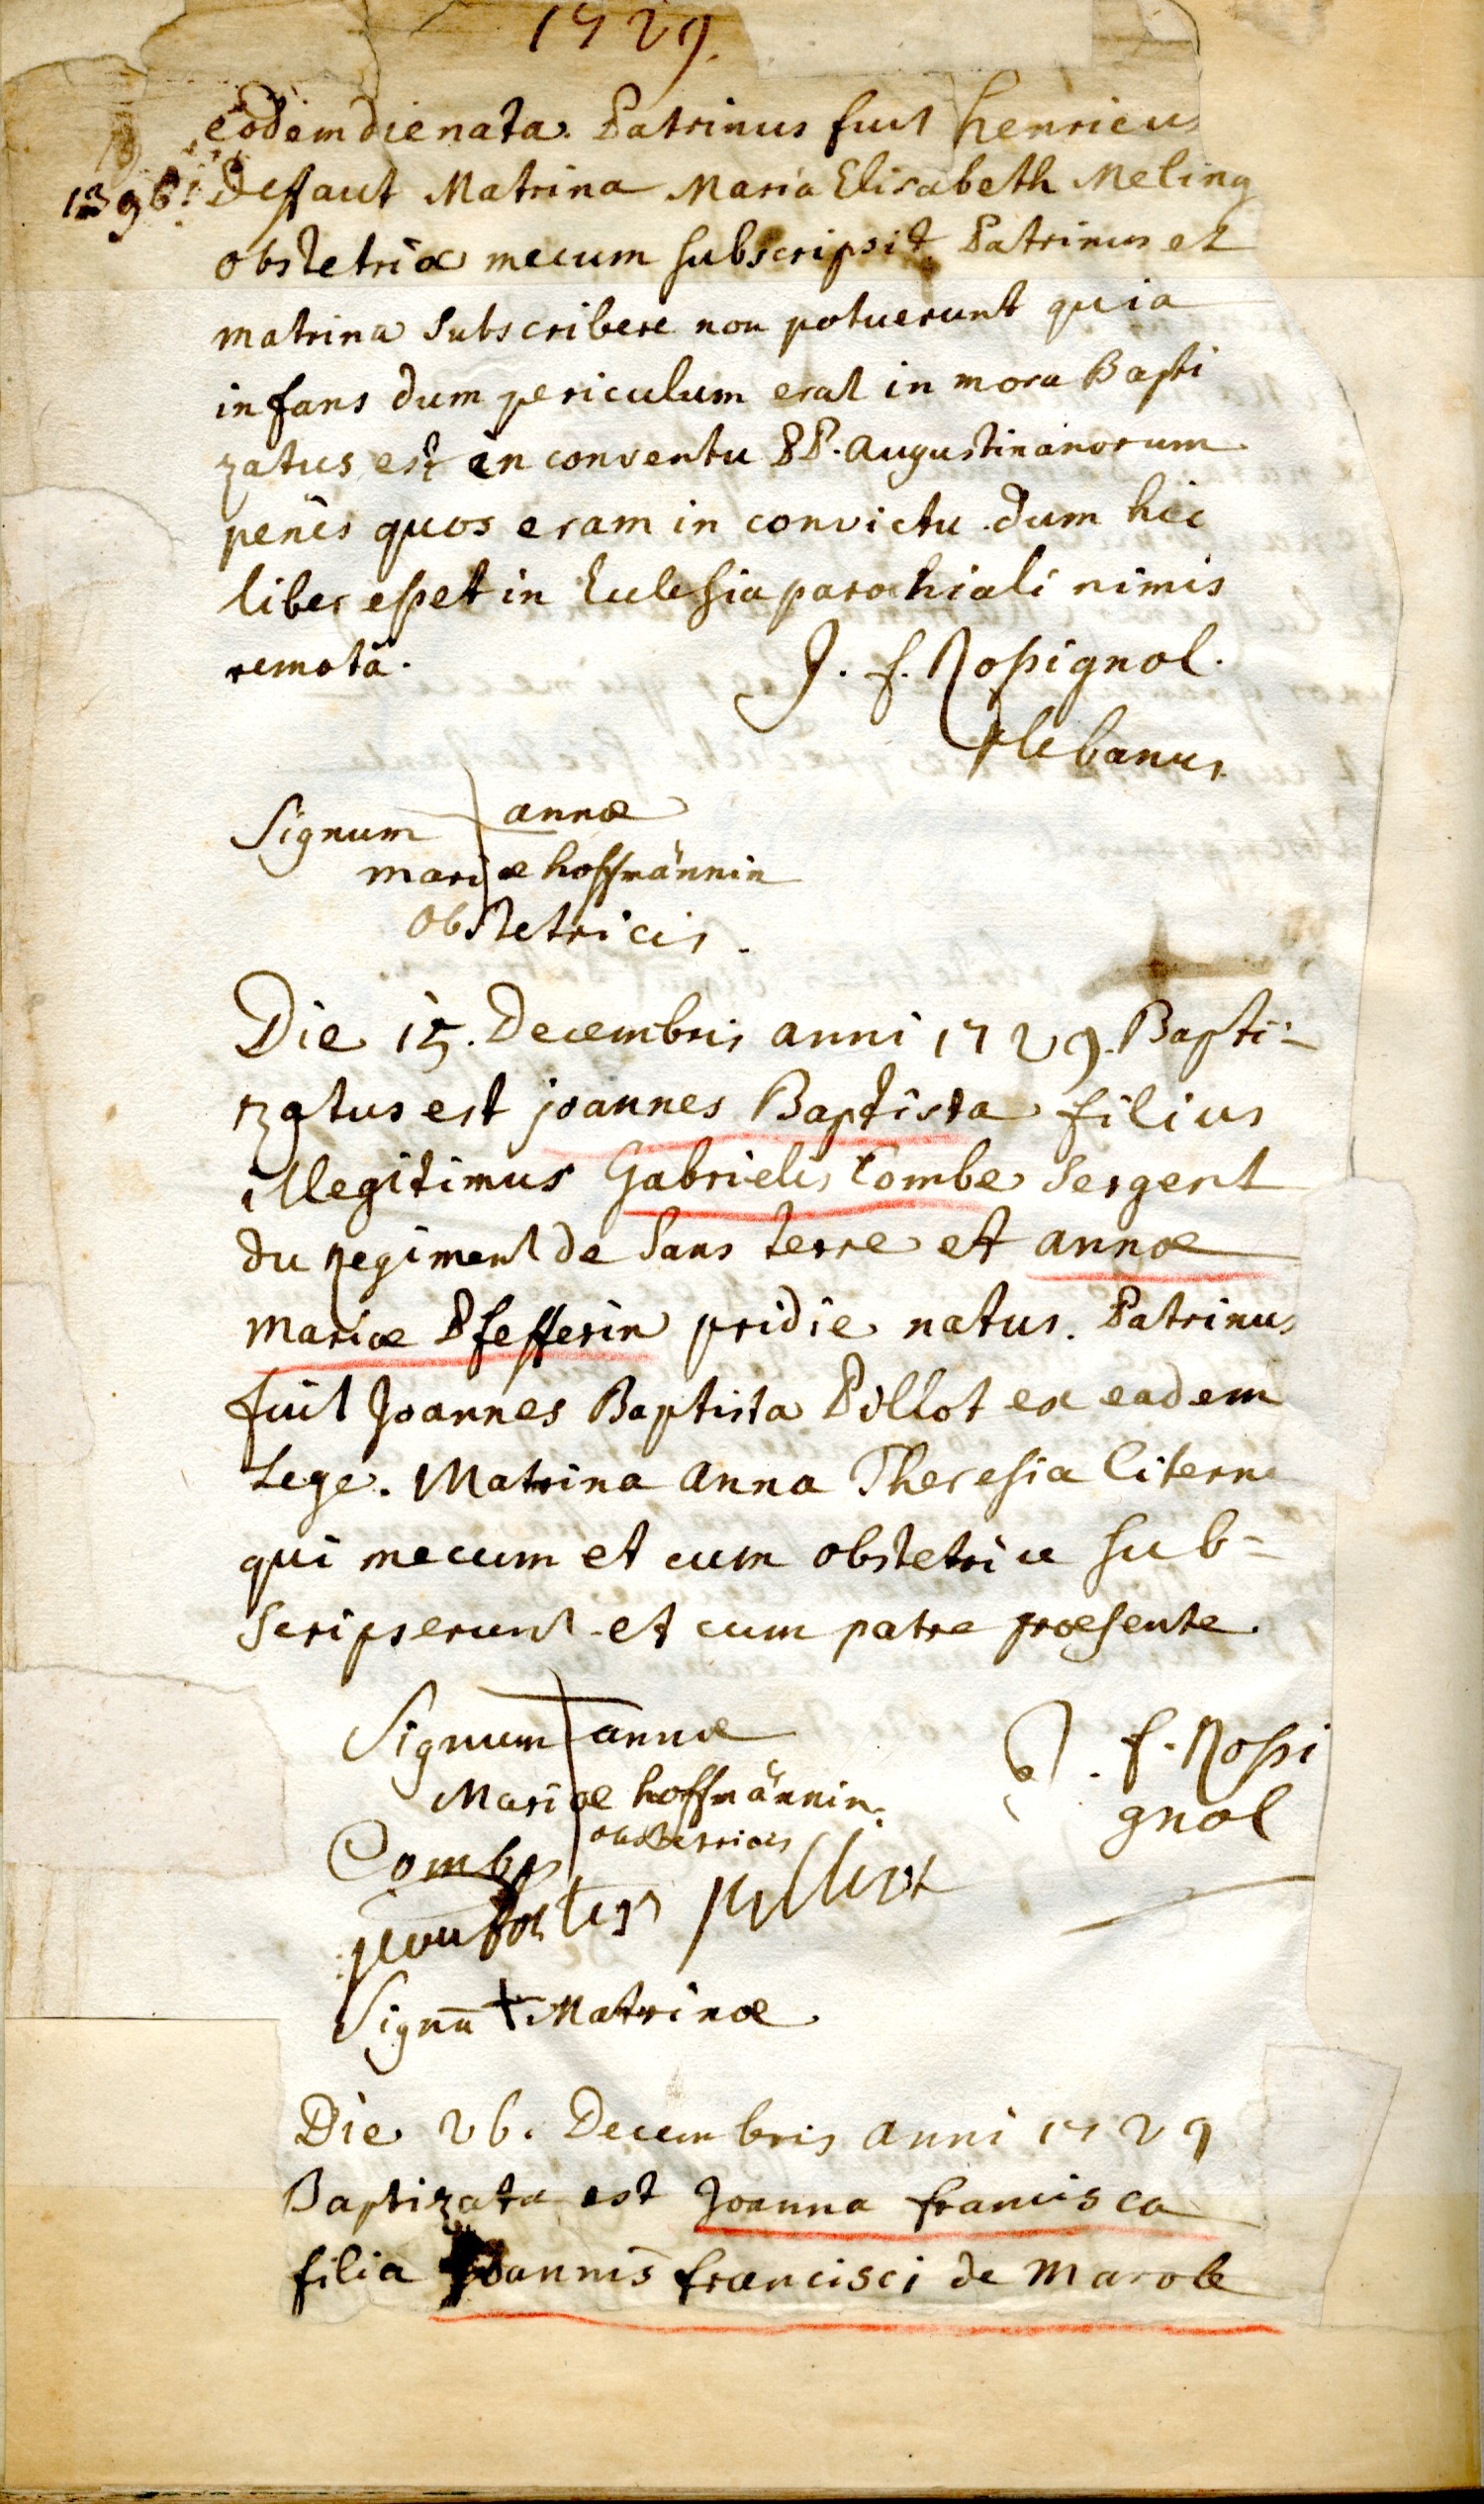 1729.
eodem die nata. Patrinus fuit henricus
Deffaut Matrina Maria Elisabeth Meling
obstetrix mecum subscripsit. Patrinus et
matrina subscribere non potuerunt quia
infans dum periculum erat in mora Bapti
zatus est in conventu PP. Augustinanorum
penès quos eram in convictu dum hic
liber esset in Ecclesia parochiali nimis
remotâ.
J. f. Rossignol.
Plebanus
Signum annæ
mariæ hoffmännin
obstetricis.
Die 15. Decembris anni 1729. Bapti=
zatus est joannes Baptista filius
illegitimus Gabrielis Combe Sergent
du Regiment de Sans terre et annæ
mariæ Pfefferin pridie natus. Patrinus
fuit Joannes Baptista Pillot ex eadem
Lege. Matrina Anna Theresia Citerne
qui mecum et cum obstetrice sub=
scripserunt et cum patre præsente.
Signum annæ
Mariæ hoffmännin
obstetricis
J. f. Rossi
gnol
Combes
Signū + Matrinæ
Die 26. Decembris anni 1729
Baptizata est Joanna francisca
filia Joannis francisci de Marole